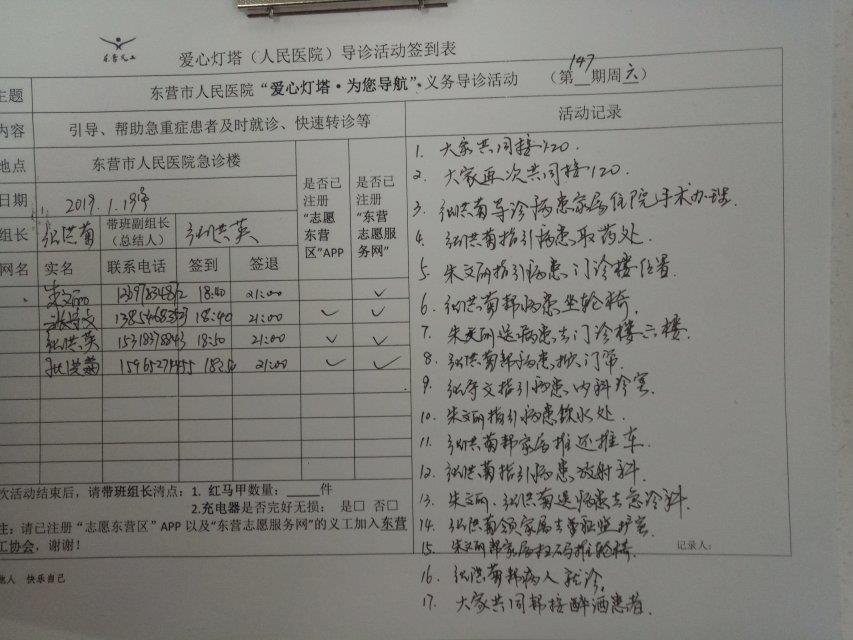 东营义工
爱心灯塔（人民医院）导诊活动签到表
主题 东营市人民医院“爱心灯塔·为您导航”义务导诊活动 （第147期周六）
内容 引导、帮助急重症患者及时就诊、快速转诊等
活动记录
地点 东营市人民医院急诊楼
是否已注册“志愿东营区”APP
是否已注册“东营志愿服务网”
日期 2019.1.19号
组长 张洪菊 带班副组长（总结人） 张洪英
网名 实名 联系电话 签到 签退
朱文丽 18:40 21:00 ✓
张守文 18:40 21:00 ✓ ✓
张洪英 15318378843 18:50 21:00 ✓ ✓
张洪菊 15965271455 18:50 21:00 ✓ ✓
次活动结束后，请带班组长清点：1. 红马甲数量：_____件
2.充电器是否完好无损： 是□ 否□
注：请已注册“志愿东营区”APP 以及“东营志愿服务网”的义工加入东营
工协会，谢谢！
他人 快乐自己
1. 大家共同接120.
2. 大家再次共同接120.
3. 张洪菊导诊病患家属住院手术办理.
4. 张洪菊指引病患取药处.
5. 朱文丽指引病患门诊楼位置.
6. 张洪菊帮病患坐轮椅.
7. 朱文丽送病患去门诊楼二楼.
8. 张洪菊帮病患掀门帘.
9. 张守文指引病患内科诊室.
10. 朱文丽指引病患饮水处.
11. 张洪菊帮家属推还推车.
12. 张洪菊指引病患放射科.
13. 朱文丽、张洪菊送病患去急诊科.
14. 张洪菊领家属去重症监护室.
15. 朱文丽帮家属扫码推轮椅.
记录人：
16. 张洪菊帮病人就诊.
17. 大家共同帮接醉酒患者.